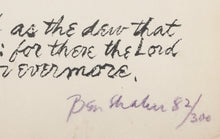 as the dew that
: for there the Lord
evermore.
Ben Shahn 82/300